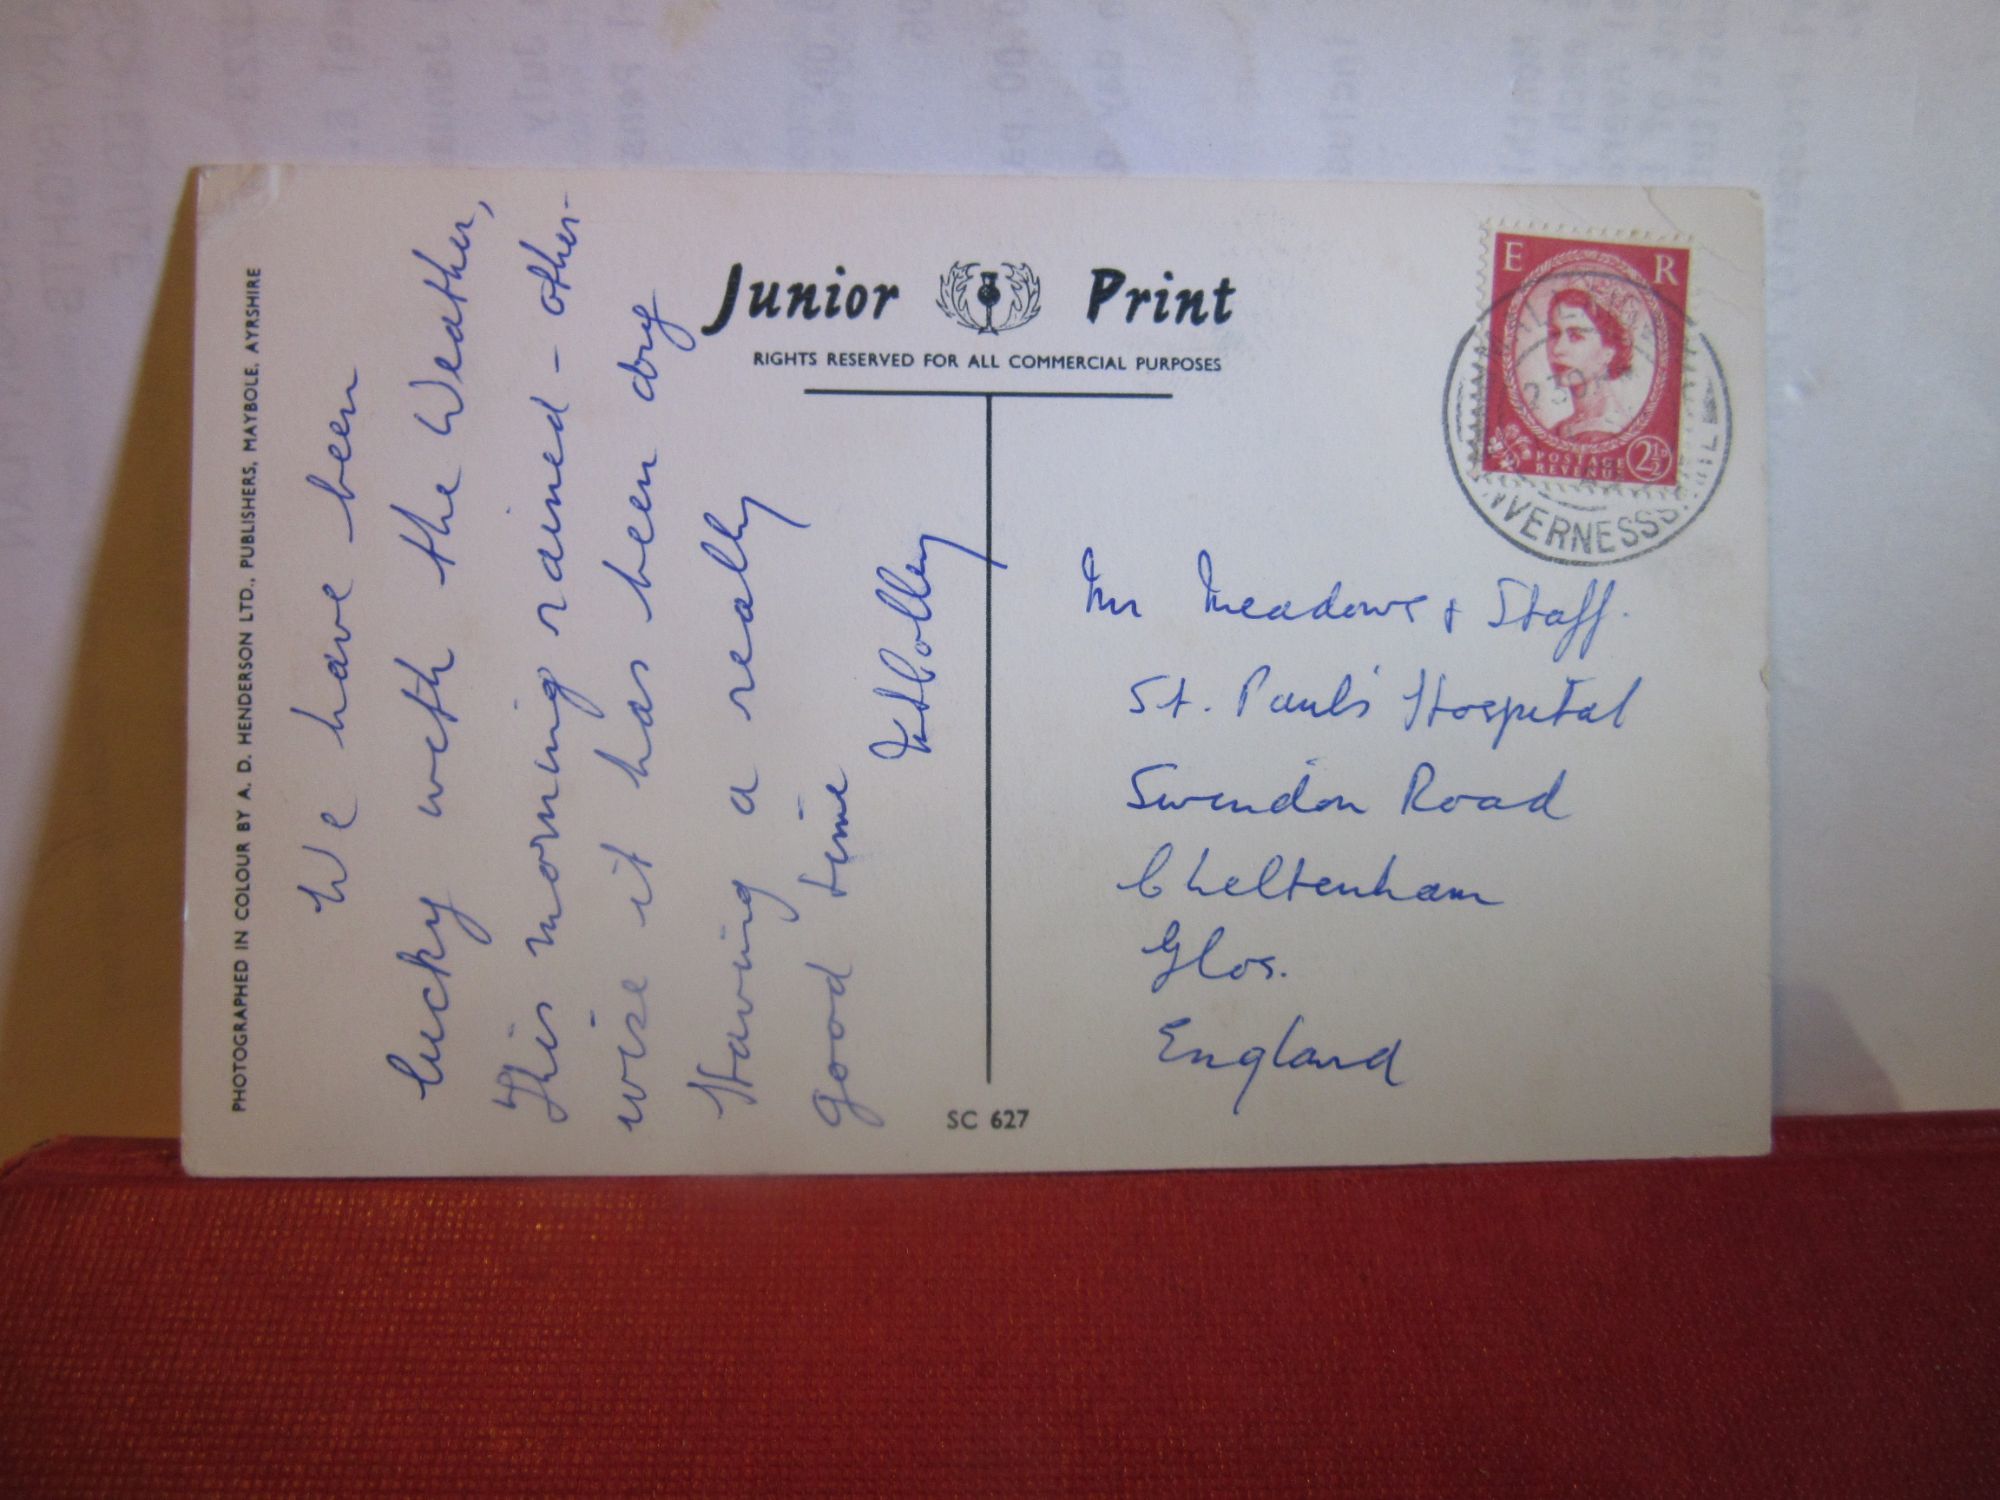 PHOTOGRAPHED IN COLOUR BY A. D. HENDERSON LTD., PUBLISHERS, MAYBOLE, AYRSHIRE
We have been
lucky with the Weather,
This morning rained - other-
wise it has been dry
Having a really
good time
Junior Print
RIGHTS RESERVED FOR ALL COMMERCIAL PURPOSES
SC 627
E R
POSTAGE
REVENUE
2½D
Mr Meadows & Staff.
St. Paul's Hospital
Swindon Road
Cheltenham
Glos.
England